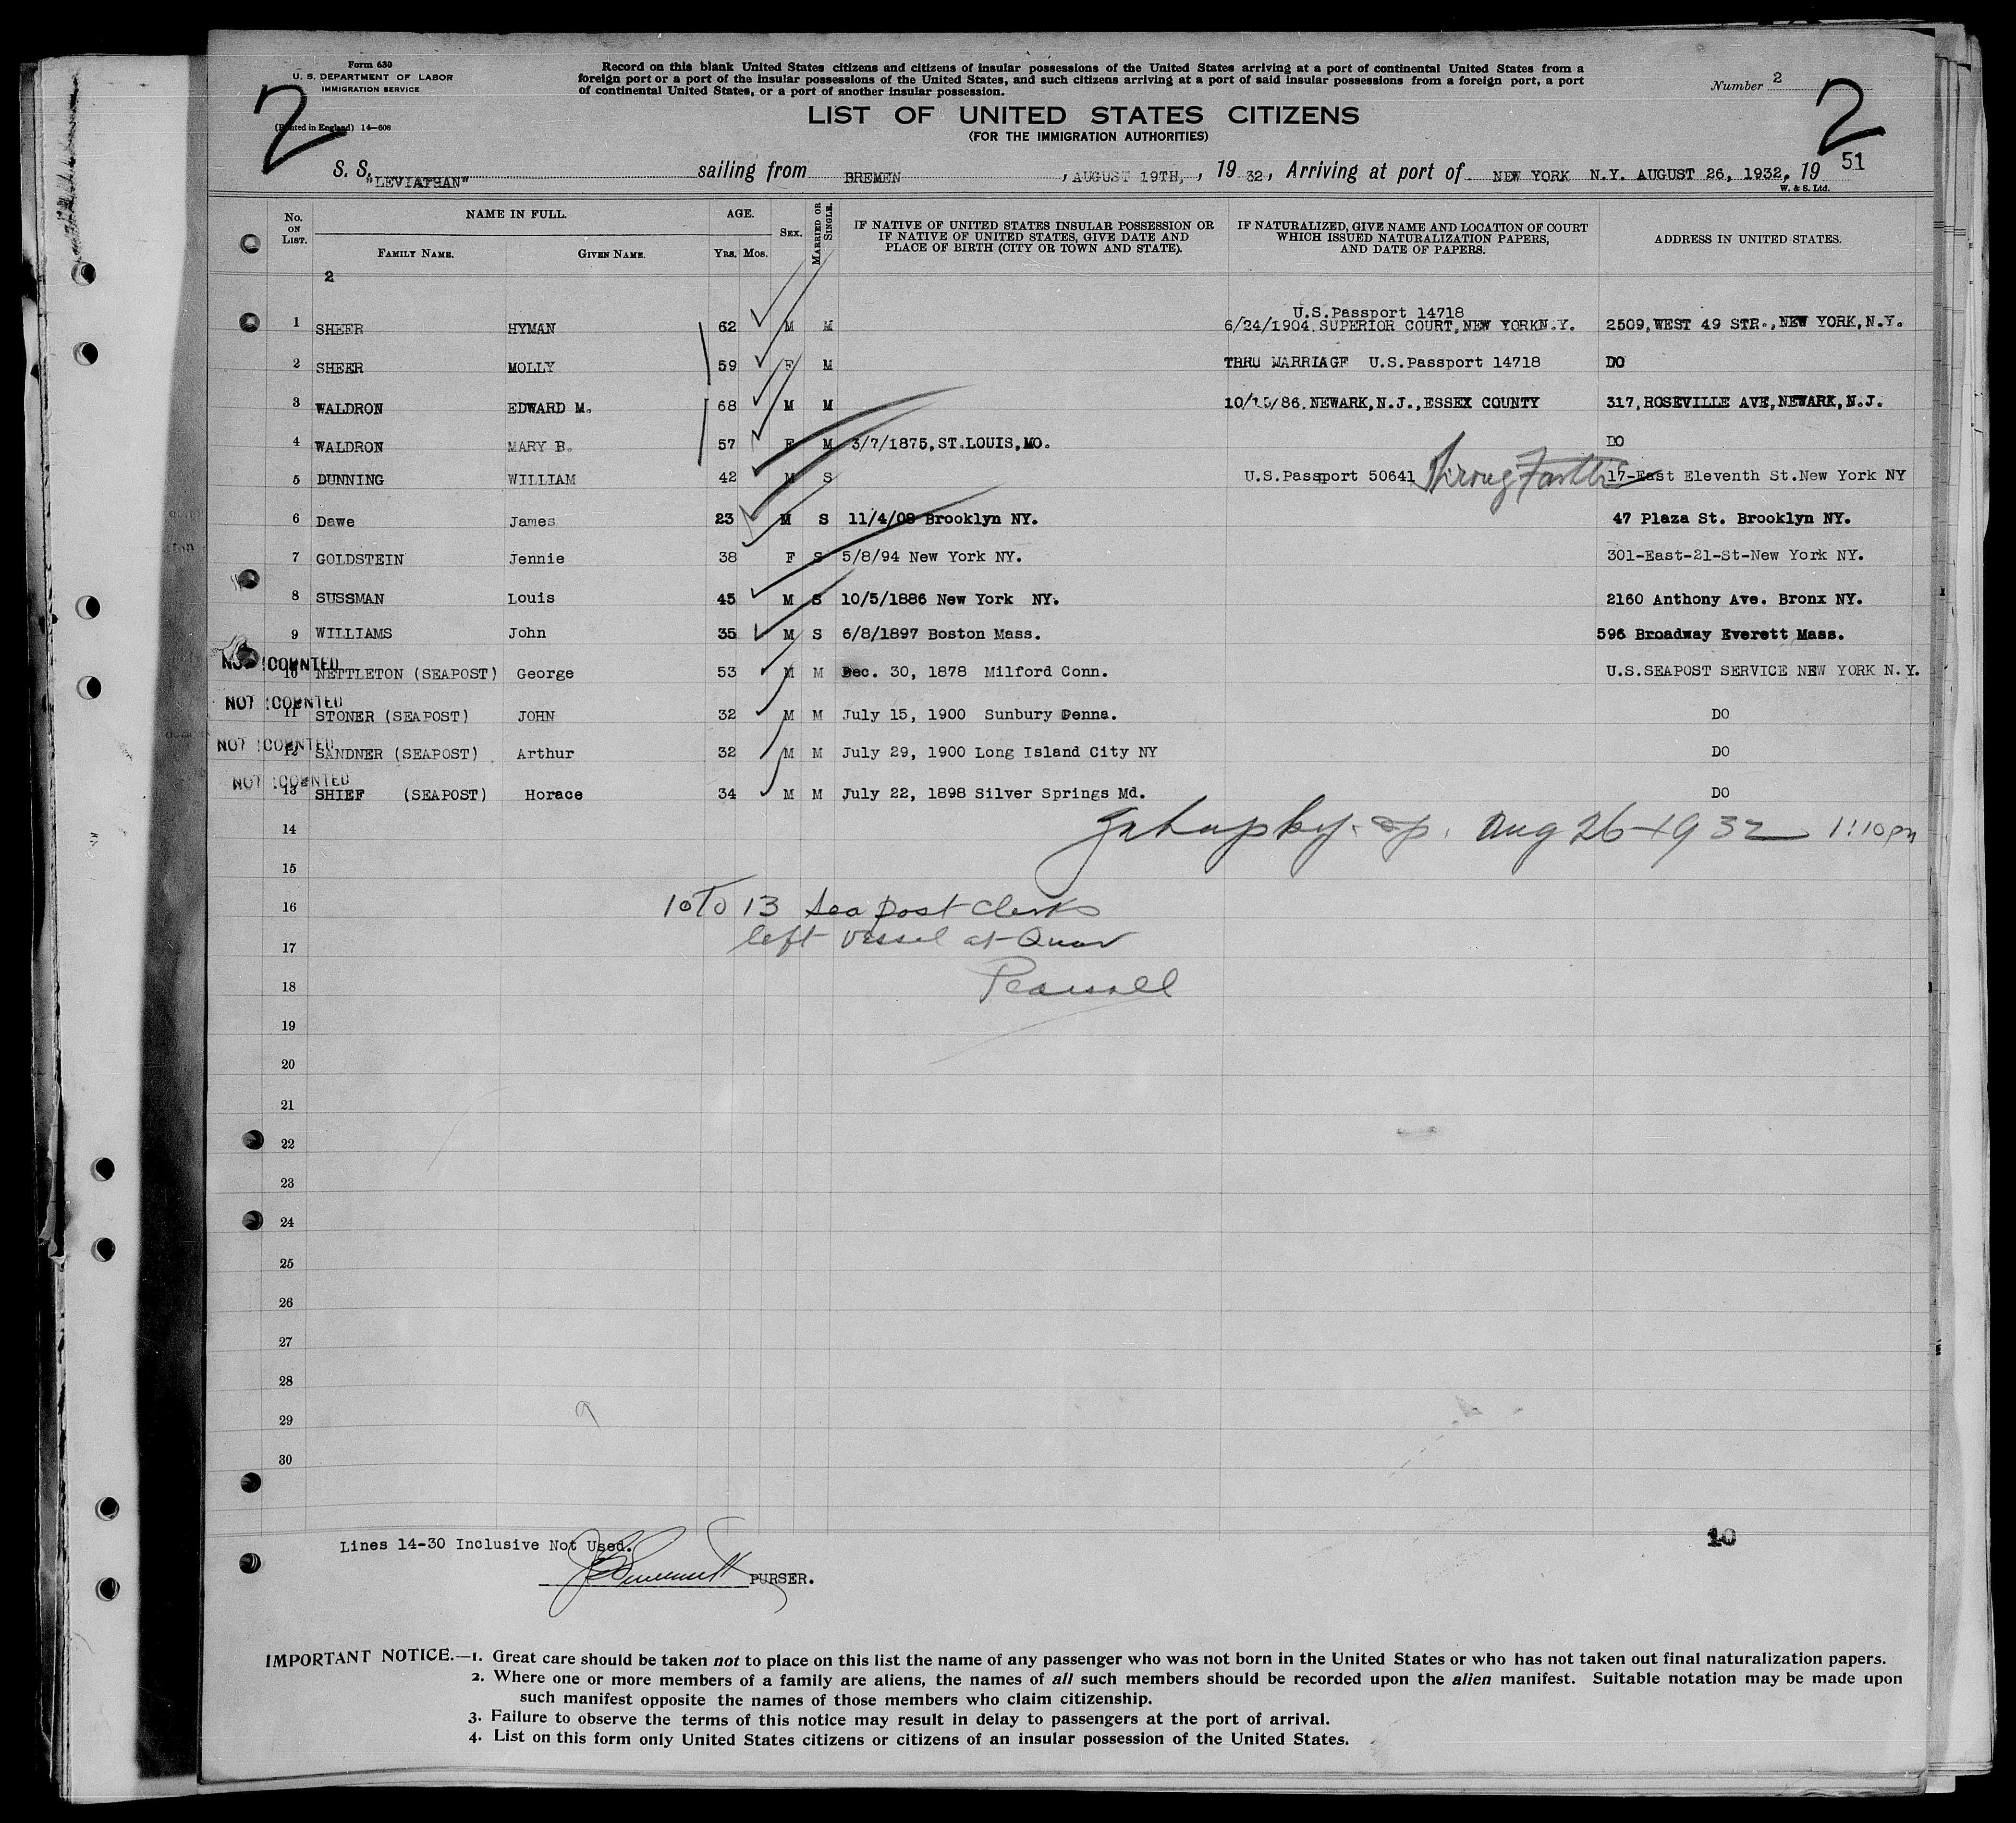 Form 630
U. S. DEPARTMENT OF LABOR
IMMIGRATION SERVICE
(Printed in England) 14—608
Record on this blank United States citizens and citizens of insular possessions of the United States arriving at a port of continental United States from a
foreign port or a port of the insular possessions of the United States, and such citizens arriving at a port of said insular possessions from a foreign port, a port
of continental United States, or a port of another insular possession.
Number 2
2 2
LIST OF UNITED STATES CITIZENS
(FOR THE IMMIGRATION AUTHORITIES)
51
S. S. "LEVIATHAN" sailing from BREMEN, AUGUST 19TH, , 19 32, Arriving at port of NEW YORK N.Y. AUGUST 26, 1932, 19
W. & S. Ltd.
No. ON LIST. NAME IN FULL. AGE. SEX. MARRIED OR SINGLE. IF NATIVE OF UNITED STATES INSULAR POSSESSION OR IF NATIVE OF UNITED STATES, GIVE DATE AND PLACE OF BIRTH (CITY OR TOWN AND STATE). IF NATURALIZED, GIVE NAME AND LOCATION OF COURT WHICH ISSUED NATURALIZATION PAPERS, AND DATE OF PAPERS. ADDRESS IN UNITED STATES.
FAMILY NAME. GIVEN NAME. YRS. MOS.
2
U.S.Passport 14718
1 SHEER HYMAN 62 M M 6/24/1904.SUPERIOR COURT,NEW YORKN.Y. 2509,WEST 49 STR.,NEW YORK,N.Y.
2 SHEER MOLLY 59 F M THRU MARRIAGE U.S.Passport 14718 DO
3 WALDRON EDWARD M. 68 M M /86.NEWARK,N.J.,ESSEX COUNTY 317,ROSEVILLE AVE,NEWARK,N.J.
4 WALDRON MARY B. 57 F M 3/7/1875,ST.LOUIS,MO. DO
5 DUNNING WILLIAM 42 M S U.S.Passport 50641 17-East Eleventh St.New York NY
6 Dawe James 23 M S 11/4/08 Brooklyn NY. 47 Plaza St. Brooklyn NY.
7 GOLDSTEIN Jennie 38 F S 5/8/94 New York NY. 301-East-21-St-New York NY.
8 SUSSMAN Louis 45 M S 10/5/1886 New York NY. 2160 Anthony Ave. Bronx NY.
9 WILLIAMS John 35 M S 6/8/1897 Boston Mass. 596 Broadway Everett Mass.
NOT COUNTED
10 NETTLETON (SEAPOST) George 53 M M Dec. 30, 1878 Milford Conn. U.S.SEAPOST SERVICE NEW YORK N.Y.
NOT COUNTED
11 STONER (SEAPOST) JOHN 32 M M July 15, 1900 Sunbury Penna. DO
NOT COUNTED
12 SANDNER (SEAPOST) Arthur 32 M M July 29, 1900 Long Island City NY DO
NOT COUNTED
13 SHIEF (SEAPOST) Horace 34 M M July 22, 1898 Silver Springs Md. DO
14 Aug 26-1932 1:10pm
15
16 10 To 13 Sea post Clerks
17 left vessel at Quar
18
19
20
21
22
23
24
25
26
27
28
29 9
30
Lines 14-30 Inclusive Not Used. 10
PURSER.
IMPORTANT NOTICE.—1. Great care should be taken not to place on this list the name of any passenger who was not born in the United States or who has not taken out final naturalization papers.
2. Where one or more members of a family are aliens, the names of all such members should be recorded upon the alien manifest. Suitable notation may be made upon
such manifest opposite the names of those members who claim citizenship.
3. Failure to observe the terms of this notice may result in delay to passengers at the port of arrival.
4. List on this form only United States citizens or citizens of an insular possession of the United States.